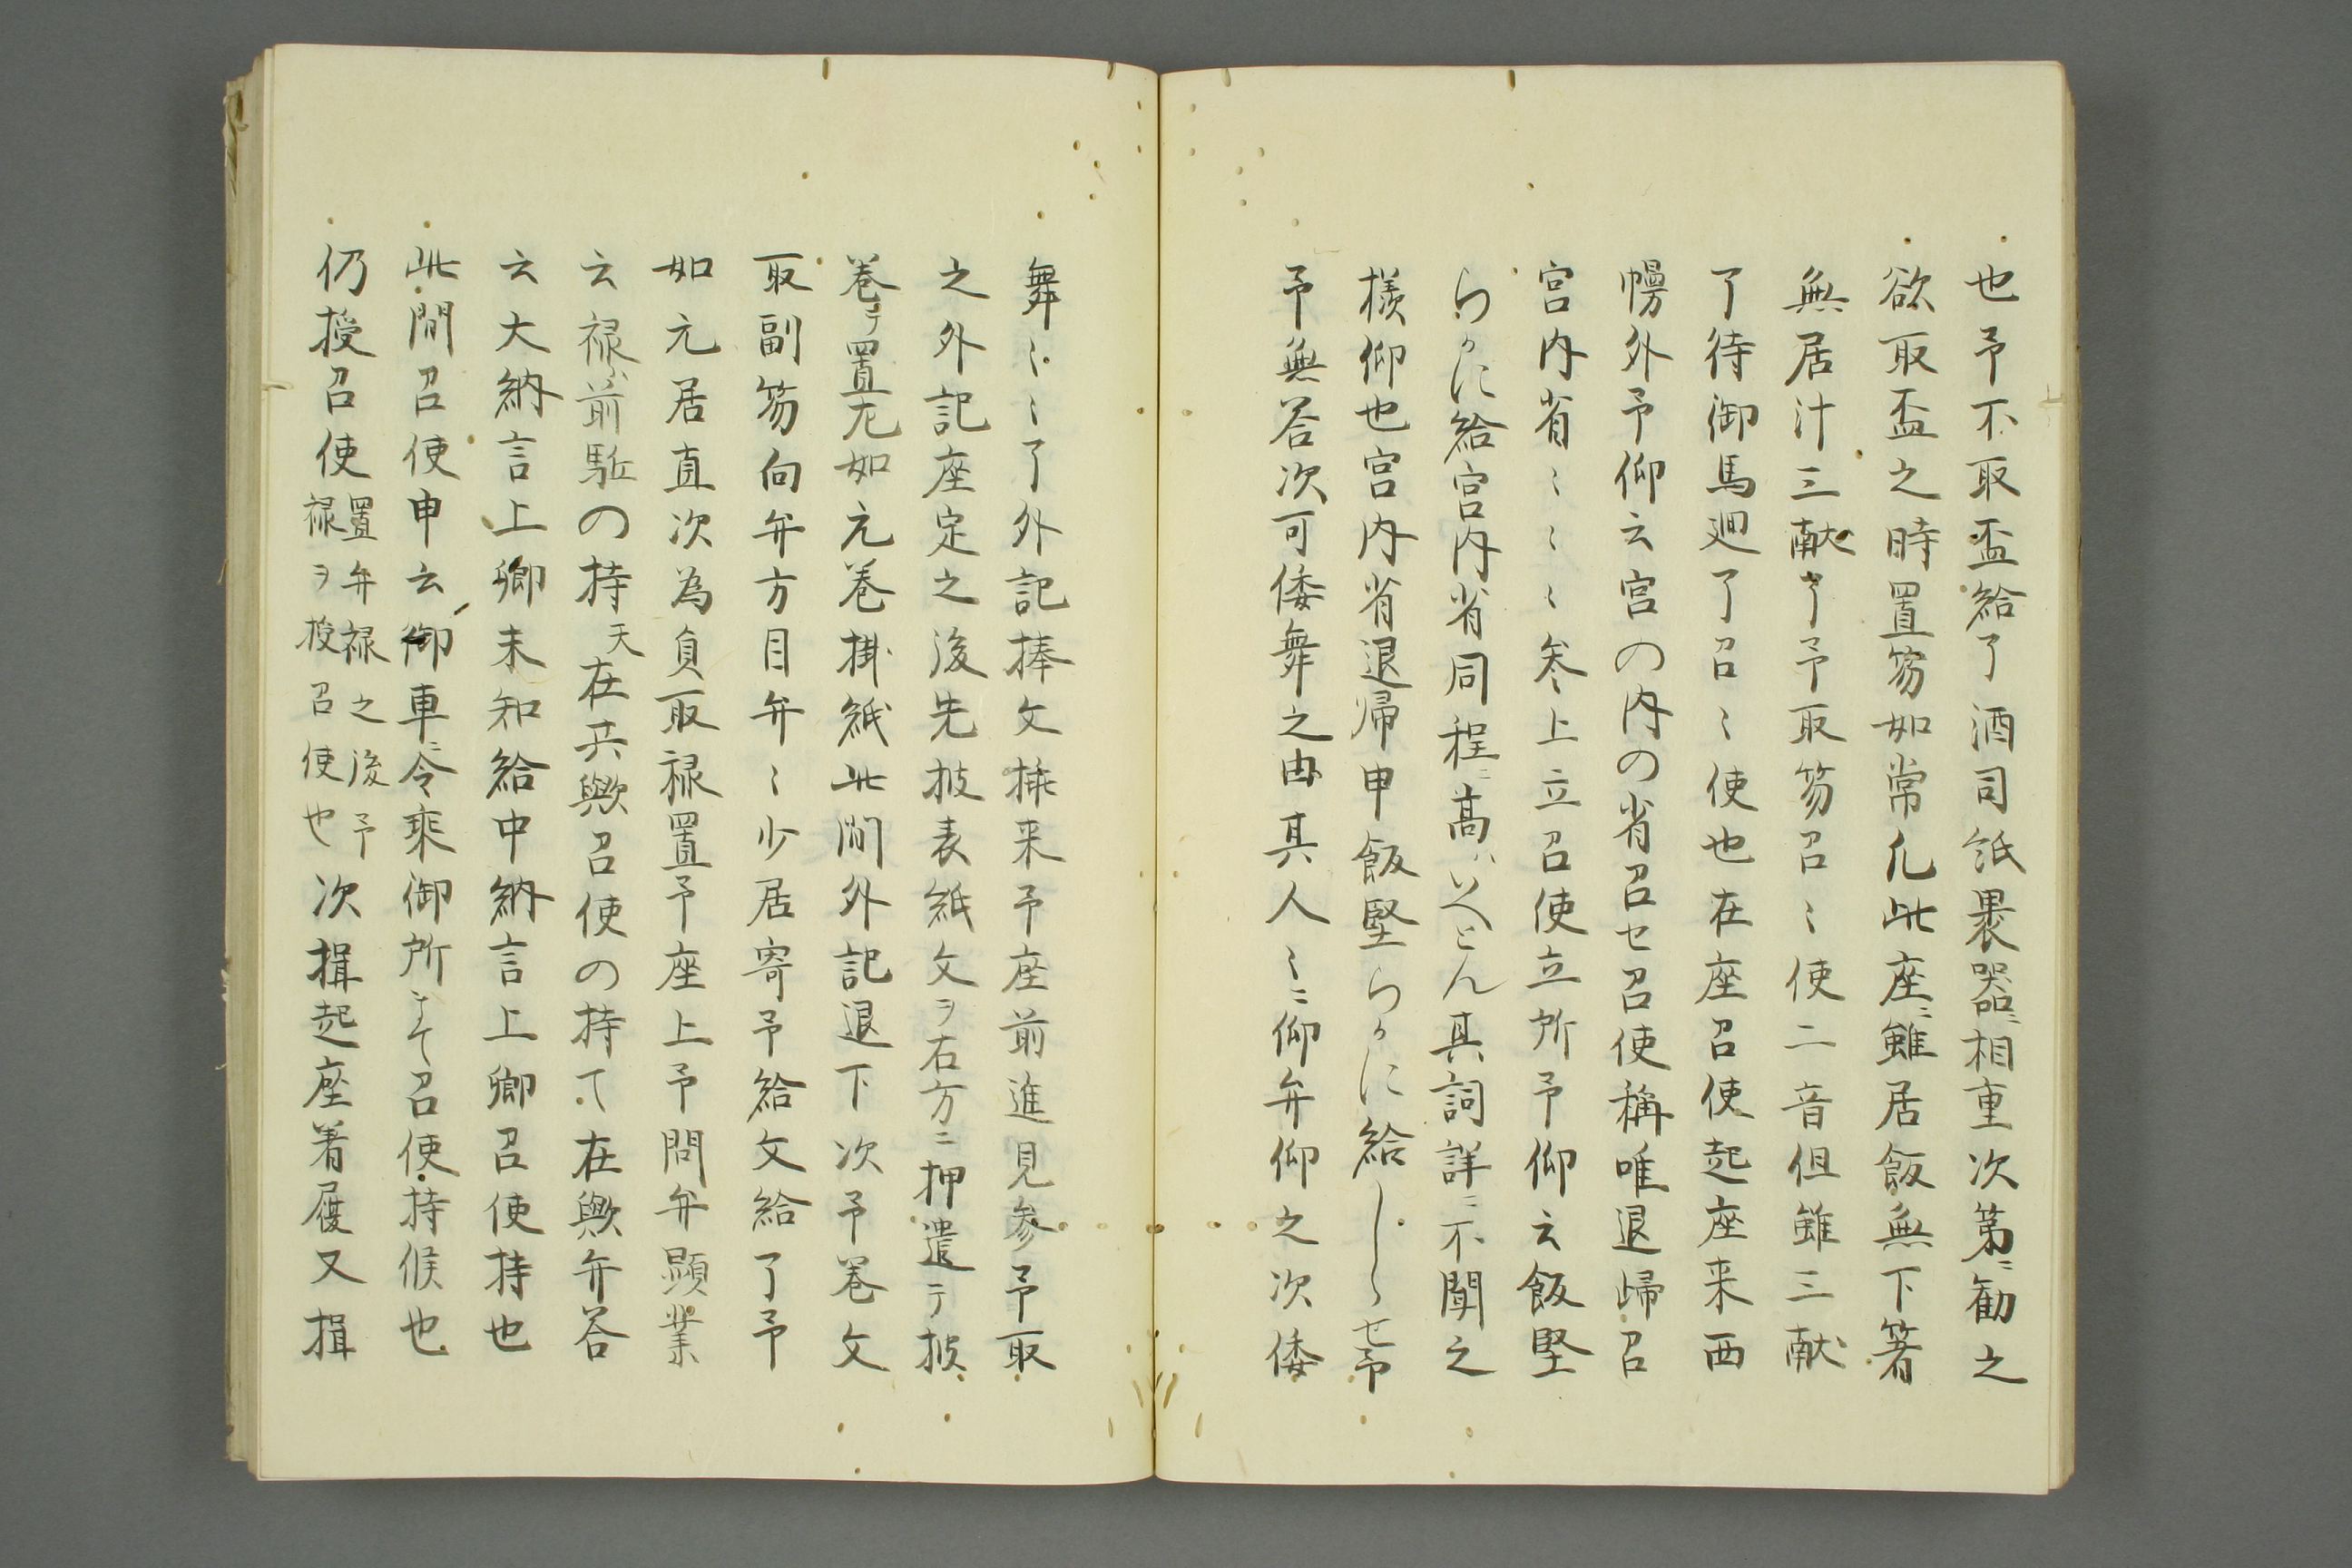 也予不取盃給了酒司紙裹器ニ相重次第ニ勧之
欲取盃之時置笏如常凡此座ニ雖居飯無下箸
無居汁三献了予取笏召〻使二音但雖三献
了待御馬廻了召〻使也在座召使起座来西
幔外予仰云宮の内の省召セ召使称唯退帰召
宮内省〻〻〻参上立召使立所予仰云飯堅
らかに給宮内省同程ニ高ハいへとん其詞詳ニ不聞之
様仰也宮内省退帰申飯堅らかに給し〻セ予
予無答次可倭舞之由其人〻ニ仰弁仰之次倭
舞〻〻了外記捧文挿来予座前進見参予取
之外記座定之後先披表紙文ヲ右方ニ押遣テ披
巻テ置尤如元巻掛紙此間外記退下次予巻文
取副笏向弁方目弁〻少居寄予給文給了予
如元居直次為負取禄置予座上予問弁顕業
云禄ハ前駈の持天在共歟召使の持て在歟弁答
云大納言上卿未知給中納言上卿召使持也
此間召使申云御車ニ令乗御所まて召使持候也
仍授召使置弁禄之後予禄ヲ授召使也次揖起座着履又揖